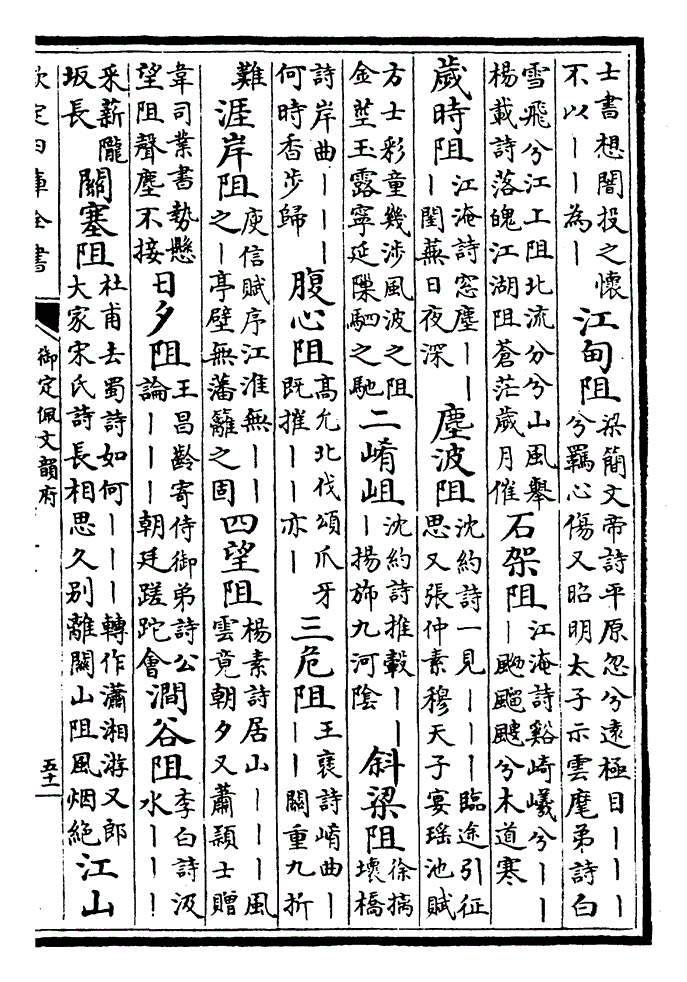 士書想闇投之懷不以丨丨為丨 江甸阻 梁簡文帝詩平原忽兮遠極目丨丨丨兮羈心傷又昭明太子示雲麾弟詩白
雪飛兮江上阻北流分兮山風舉楊載詩落魄江湖阻蒼茫歲月催 石架阻 江淹詩谿崎嶬兮丨丨丨飈颼兮木道寒
歲時阻 江淹詩窓塵丨丨丨閨蕪日夜深 塵波阻 沈約詩一見丨丨丨臨途引征思又張仲素穆天子宴瑶池賦
方士彩童幾涉風波之阻金塋玉露寧延隟駟之馳 二崤岨 沈約詩推轂丨丨丨揚斾九河陰 斜梁阻 徐摛壞橋
詩岸曲丨丨丨何時香步歸 腹心阻 高允北伐頌爪牙既摧丨丨亦丨 三危阻 王襃詩崤曲丨丨丨關重九折
難 涯岸阻 庾信賦序江淮無丨丨之丨亭壁無藩籬之固 四望阻 楊素詩居山丨丨丨風雲竟朝夕又蕭頴士贈
韋司業書勢懸望阻聲塵不接 日夕阻 王昌齡寄侍御弟詩公論丨丨丨朝廷蹉跎會 澗谷阻 李白詩汲水丨丨丨
采薪隴坂長 關塞阻 杜甫去蜀詩如何丨丨丨轉作瀟湘游又郎大家宋氏詩長相思久别離關山阻風烟絶 江山
欽定四庫全書
御定佩文韻府
五十一